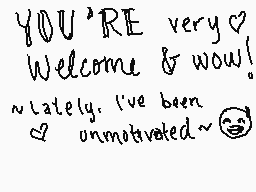 YOU'RE very ♡
Welcome & wow!
~Lately, I've been
♡ unmotivated~